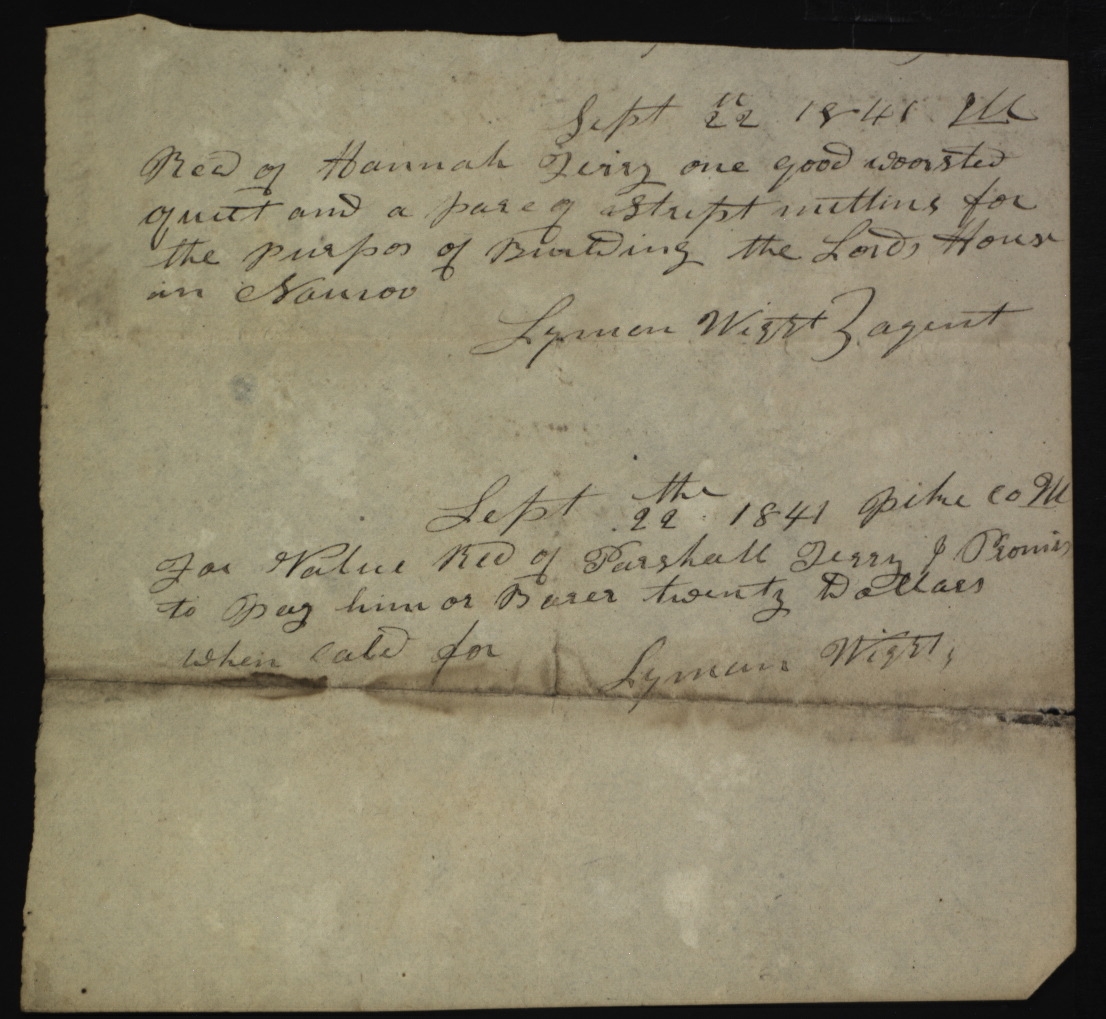 Sept 22 1841 Ill
Recd of Hannah Terry one good woorsted
quilt and a pare of Stript mittins for
the purpos of Building the Lords House
in Nauvoo
Lyman Wight } agent
Sept 22 the 1841 Pike Co Ill
For Value Recd of Parshall Terry I Promis
to Pay him or Barer twenty Dollars
when cald for
Lyman Wight,